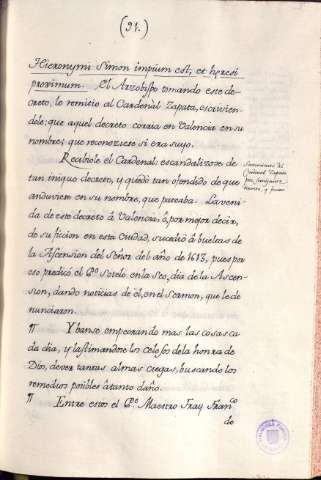 (91.)
Hieronymi Simon impium est, et heresi
proximum. El Arzobispo tomando este de-
creto, lo remitio al Cardenal Zapata, escrivien-
dole: que aquel decreto corria en Valencia en su
nombre; que reconoziese si era suyo.
Recibiole el Cardenal: escandalizose de
tan iniquo decreto, y quedó tan ofendido de que
anduviese en su nombre, que pasmaba. La veni-
da de este decreto á Valencia, ó, por mejor decir,
de su ficion en esta Ciudad, sucedió á bueltas de
la Ascension del Señor del año de 1618, pues por
eso predicó el Pe. Sotelo en la Seo, dia de la Ascen-
sion, dando noticias de él, en el Sermon, que le de-
nunciaron.
¶ Ybanse empeorando mas las cosas ca-
da dia, y lastimandose los celosos de la honra de
Dios, de ver tantas almas ciegas, buscando los
remedios posibles á tanto daño.
¶ Entre esos el Pe. Maestro Fray Franco.
de
Sentimiento del
Cardenal Zapata